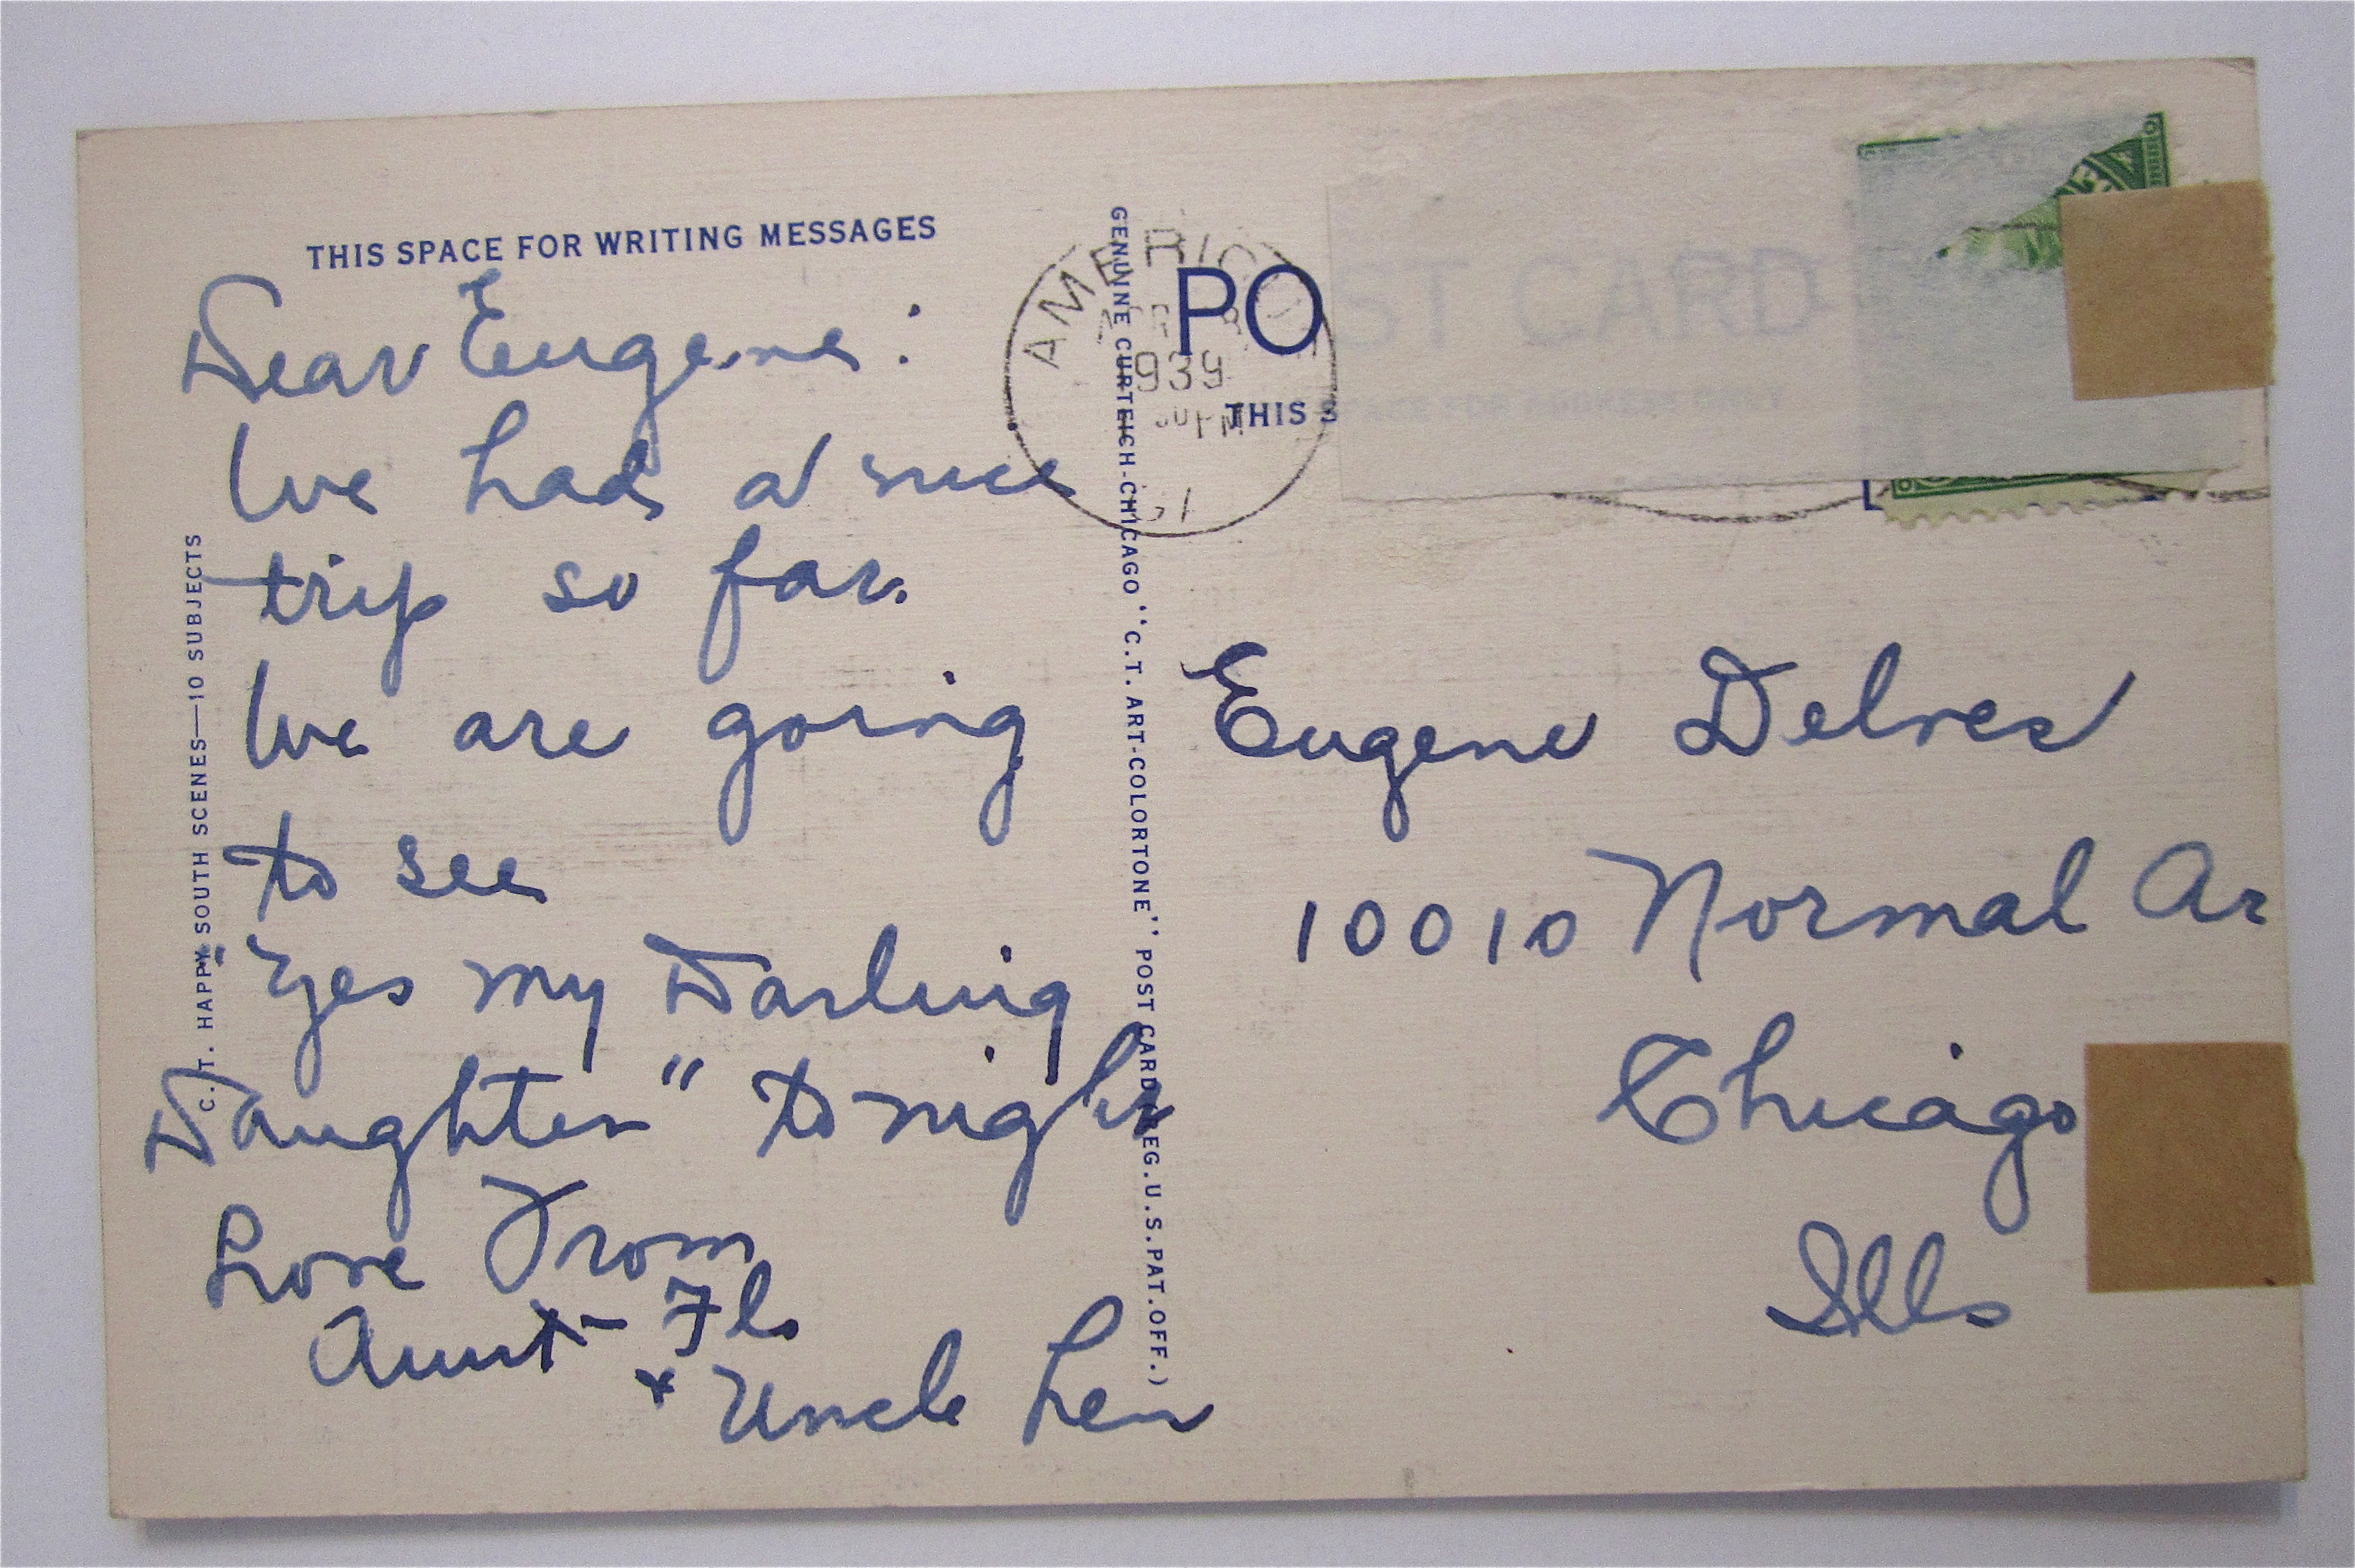 THIS SPACE FOR WRITING MESSAGES
Dear Eugene:
We had a nice
trip so far.
We are going
to see
"Yes my Darling
Daughter" tonight
Love From
Aunt - Flo
+ Uncle Len
C.T. HAPPY SOUTH SCENES—10 SUBJECTS
GENUINE CURTEICH-CHICAGO "C.T. ART-COLORTONE" POST CARD (REG. U.S. PAT. OFF.)
939
POST CARD
THIS SPACE FOR ADDRESS ONLY
Eugene Delves
10010 Normal Av
Chicago
Ills